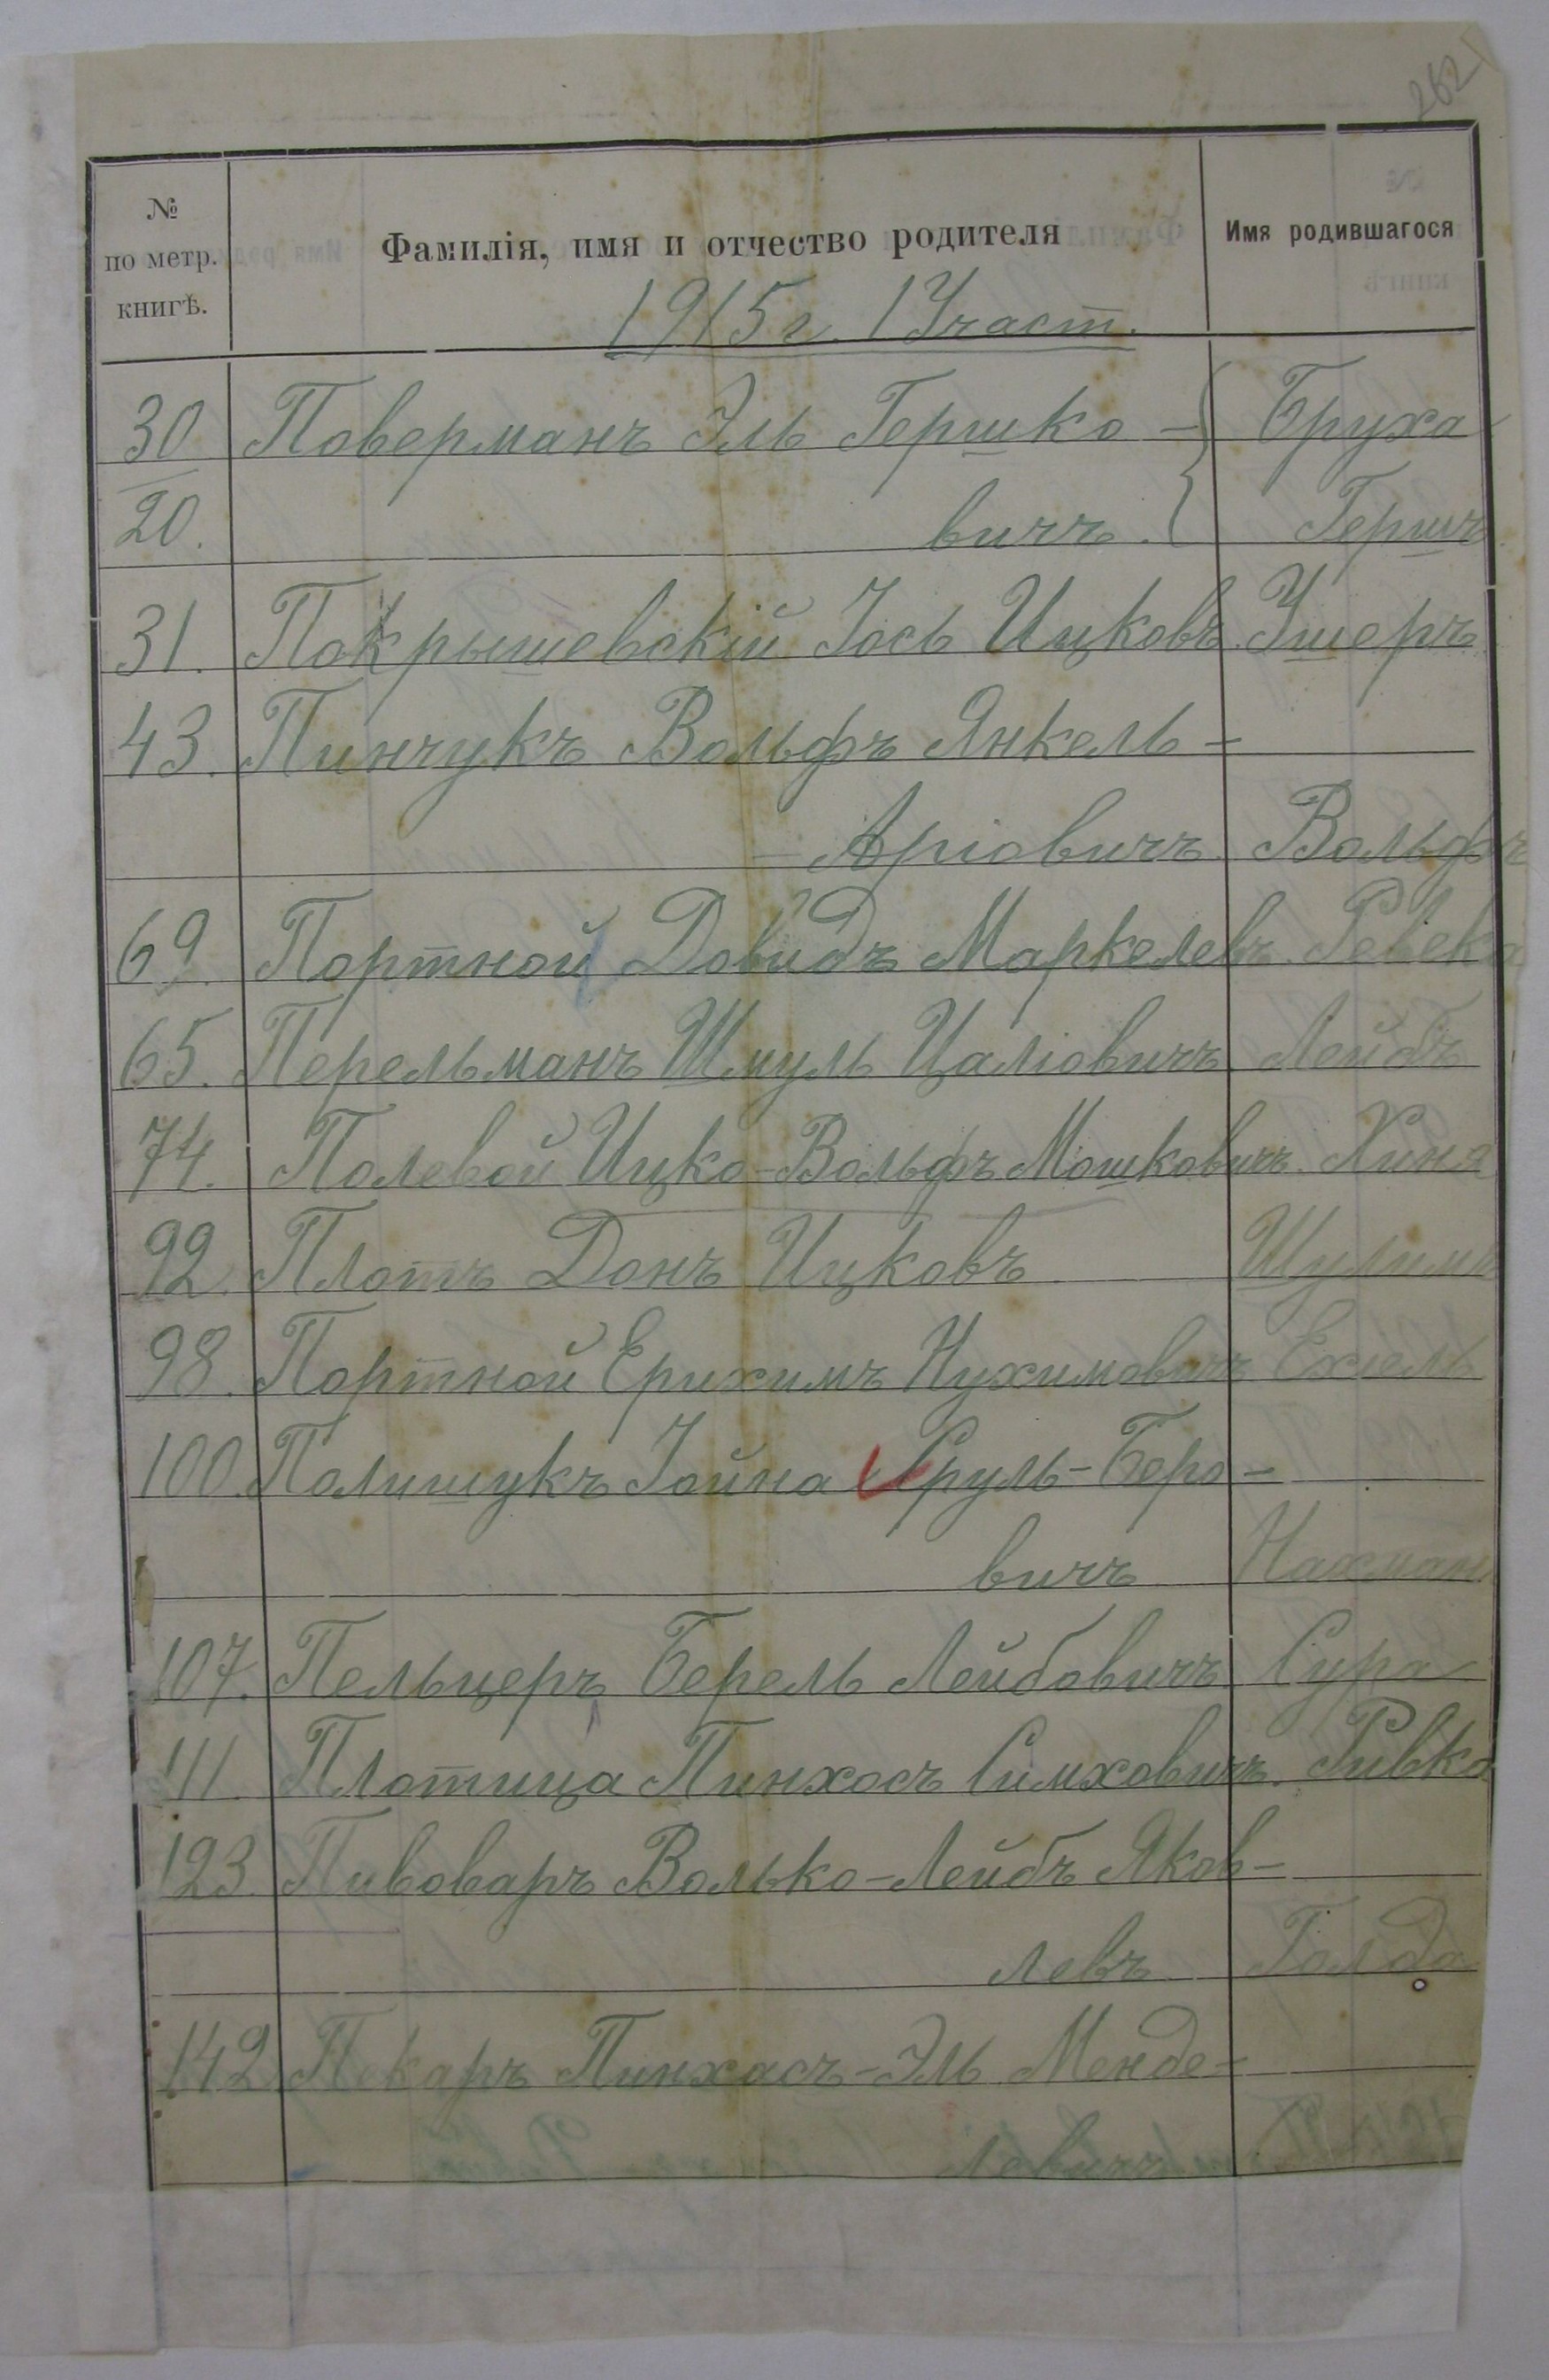 262
№ по метр. книгѣ. Фамилія, имя и отчество родителя Имя родившагося
1915 г. 1 Участ.
30 Поверманъ Эль Гершко- Бруха
20. вичъ. Гершъ
31. Покрышевскій Іось Ицковъ. Ушеръ
43. Пинчукъ Вольфъ Янкель-
Аріовичъ. Вольфъ
69. Портной Довидъ Маркелевъ. Ревека
65. Перельманъ Шмуль Цаліовичъ Лейбъ
74. Полевой Ицко-Вольфъ Мошковичъ. Хиня
92. Плотъ Донъ Ицковъ Шулимъ
98. Портной Ерихимъ Нухимовичъ Ехиель
100. Полишукъ Іойна Сруль-Беро-
вичъ Нахман
107. Пельцеръ Берель Лейбовичъ Сура
111. Плотица Пинхосъ Симховичъ. Ривка
123. Пивоваръ Волько-Лейбъ Яков-
левъ Голда
142. Пекаръ Пинхасъ-Эль Менде-
левичъ